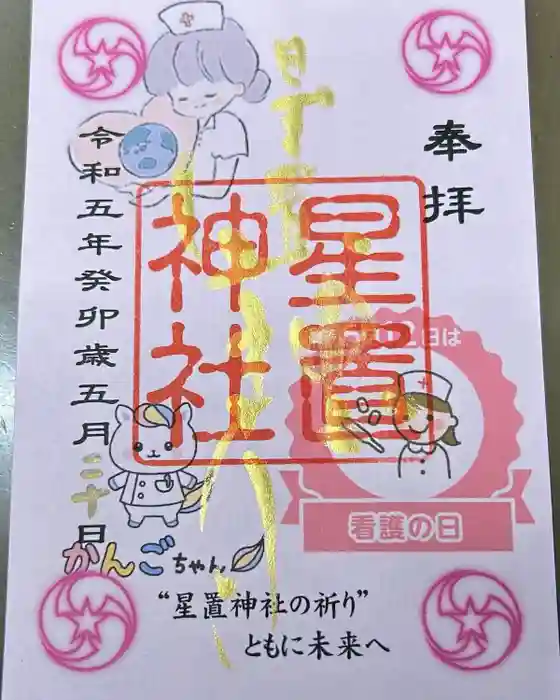 奉拝
星置
神社
令和五年癸卯歳五月二十日
5月12日は
看護の日
かんごちゃん
“星置神社の祈り”
ともに未来へ